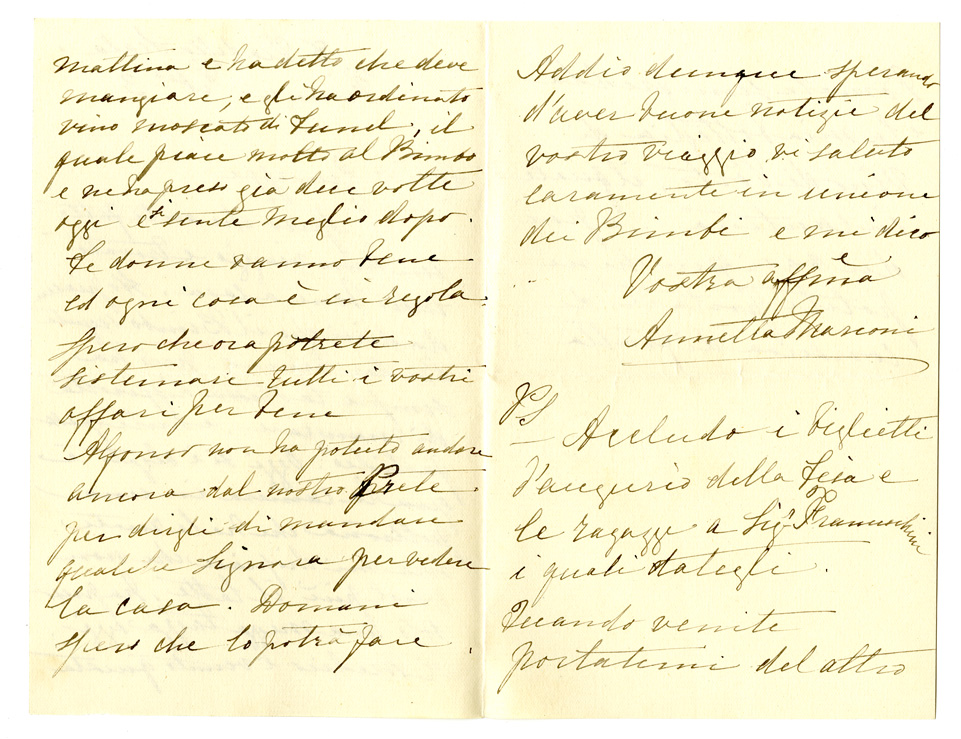 mattina e ha detto che deve
mangiare, e gli ha ordinato
vino moscato di
il
quale piace molto al Bimbo
e ne ha preso già due volte
oggi e si sente meglio dopo.
Le donne vanno bene
ed ogni cosa è in regola.
Spero che ora potrete
sistemare tutti i vostri
affari per bene
Alfonso non ha potuto andare
ancora dal nostro Prete
per dirgli di mandare
qualche Signora per vedere
la casa. Domani
spero che lo potrà fare.
Addio dunque sperando
d'aver buone notizie del
vostro viaggio vi saluto
caramente in unione
dei Bimbi e mi dico
Vostra affma
Annetta Marconi
PS
Accludo i biglietti
d'augurio della
e
le ragazze a Sigr
i quali dategli.
Quando venite
portatemi del altro